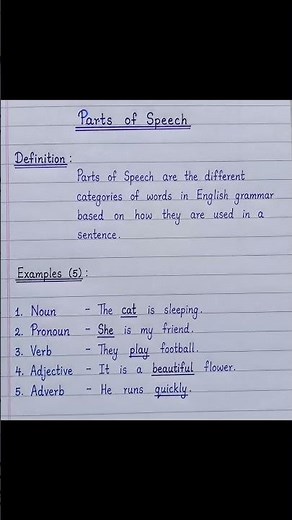 Parts of Speech
Definition :
Parts of Speech are the different
categories of words in English grammar
based on how they are used in a
sentence.
Examples (5) :
1. Noun - The cat is sleeping.
2. Pronoun - She is my friend.
3. Verb - They play football.
4. Adjective - It is a beautiful flower.
5. Adverb - He runs quickly.